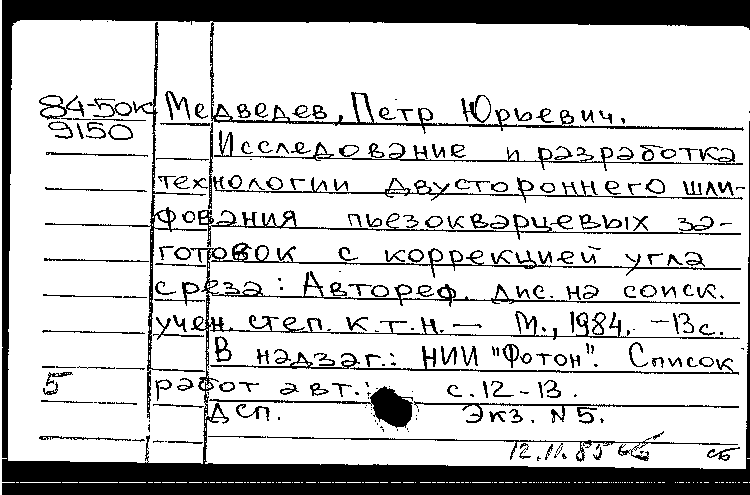 84-50к Медведев, Петр Юрьевич.
9150
Исследование и разработка
технологии двустороннего шли-
фования пьезокварцевых за-
готовок с коррекцией угла
среза: Автореф. дис. на соиск.
учен. степ. к.т.н. — М., 1984. -13с.
В надзаг.: НИИ "Фотон". Список
5 работ авт.: с. 12-13.
ДСП. Экз. N 5.
12.11.85 сб